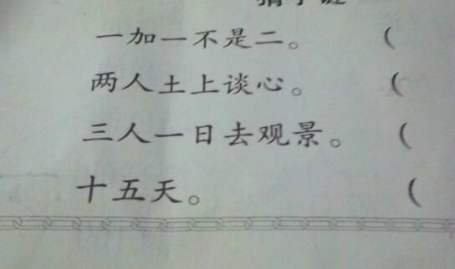 一加一不是二。 (
两人土上谈心。 (
三人一日去观景。 (
十五天。 (